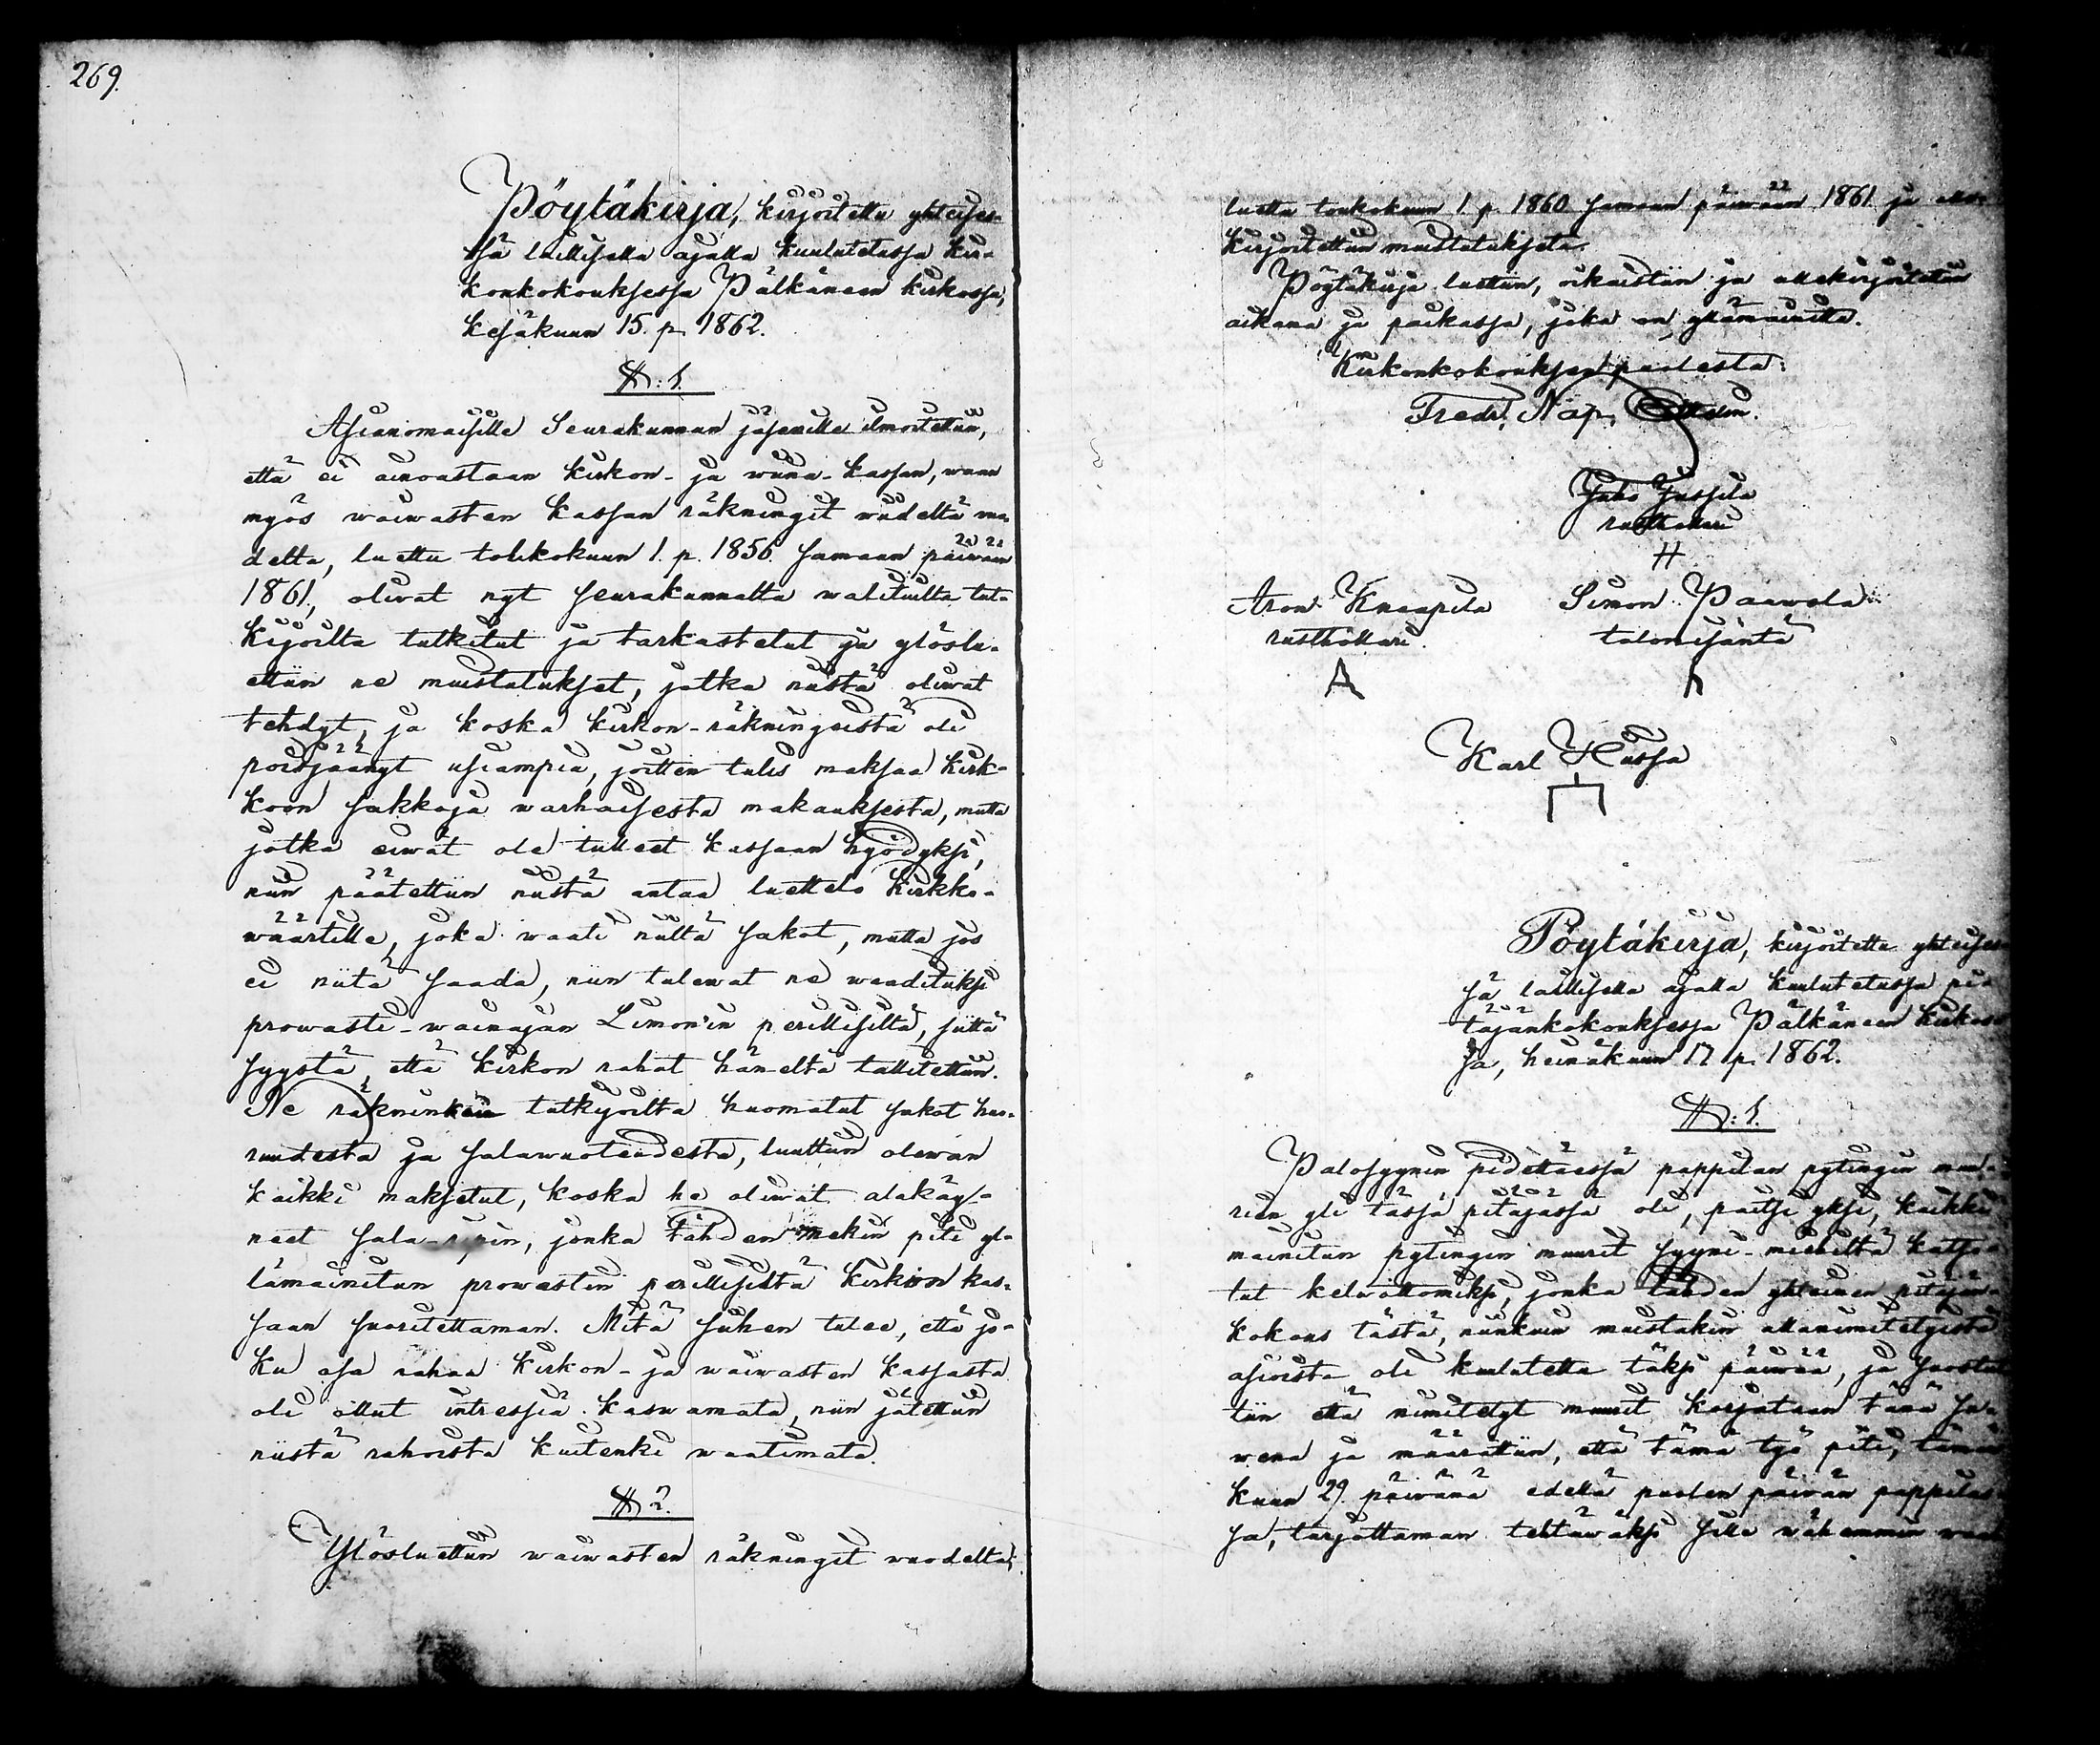 269.
Pöytäkirja, kirjoitettu yhteises-
sä laillisella ajalla kuulutetussa kir-
konkokouksessa Pälkäneen kirkossa,
kesäkuun 15. p. 1862.
§: 1.
Asianomaisille Seurakunnan jäsenille ilmoitettiin,
että ei ainoastaan kirkon- ja wiina-kassan, waan
myös waiwasten kassan räkningit wiideltä wuo-
delta, luettu toukokuun 1. p. 1856. samaan päiwään
1861, oliwat nyt seurakunnalta walituilta tut-
kijoilta tutkitut ja tarkastelut ja ylöslu-
ettiin ne muistutukset, jotka niistä oliwat
tehdyt, ja koska kirkon-räkningeistä oli
poisjäänyt usiampia, joitten tulis maksaa kirk-
koon sakkoja warhaisesta makauksesta, mutta
jotka eiwät ole tulleet kassaan hyödyksi,
niin päätettiin niistä antaa luettelo kirkko-
wäärtille, joka waati niiltä sakot, mutta jos
ei niitä saada, niin tulewat ne waadituksi
prowasti-wainajan Limon'in perillisiltä, siitä
syystä, että kirkon rahat häneltä tallitettiin.
Ne räkninkein tutkijoilta huomatut sakot huo-
ruudesta ja salawuoteudesta, luultiin olewan
kaikki maksetut, koska he oliwat alakäy-
neet sala-ripin, jonka tähden mekin piti yl-
lämainitun prowastin perillisiltä kirkon kas-
saan suoritettaman. Mitä siihen tulee, että jo-
ku osa rahaa kirkon- ja waiwasten kassasta
oli ollut intressiä kaswamata, niin jätettiin
niistä rahoista kuitenki waatimata.
§ 2.
Ylösluettiin waiwasten räkningit wuodelta,
luettu toukokuun 1. p. 1860 samaan päiwään 1861 ja alle-
kirjoitettiin muistutukseta.
Pöytäkirja luettiin, oikaistiin ja allekirjoitettiin
aikana ja paikassa, joka on yllämainittu.
Kirkonkokouksen puolesta:
Fredr. Nap.
Juho Jussila
rusthollari
H
Aron Knaapila
rusthollari.
A
Simon Paawola
talonisäntä
Karl Hiissa
Pöytäkirja, kirjoitettu yhteises-
sä laillisella ajalla kuulutetussa pi-
täjänkokouksessa Pälkäneen kirkos-
sa, heinäkuun 17 p. 1862.
§: 1.
Palosyynin pidettäessä pappilan pytingin muu-
rien yli tässä pitäjässä oli, paitsi yksi, kaikki
mainitun pytingin muurit syyni-miehiltä katso-
tut kelwottomiksi, jonka tähden yhteinen pitäjän-
kokous tästä, niinkuin muistakin allanimitetyistä
asioista oli kuulutettu täksi päiwää, ja suostut-
tiin että nimitetyt muurit korjataan tänä su-
wena ja määrättiin, että tämä työ piti, tämän
kuun 29. päiwänä edellä puolen päiwän pappilas-
sa, tarjottaman tehtäwäksi sille wähemmin